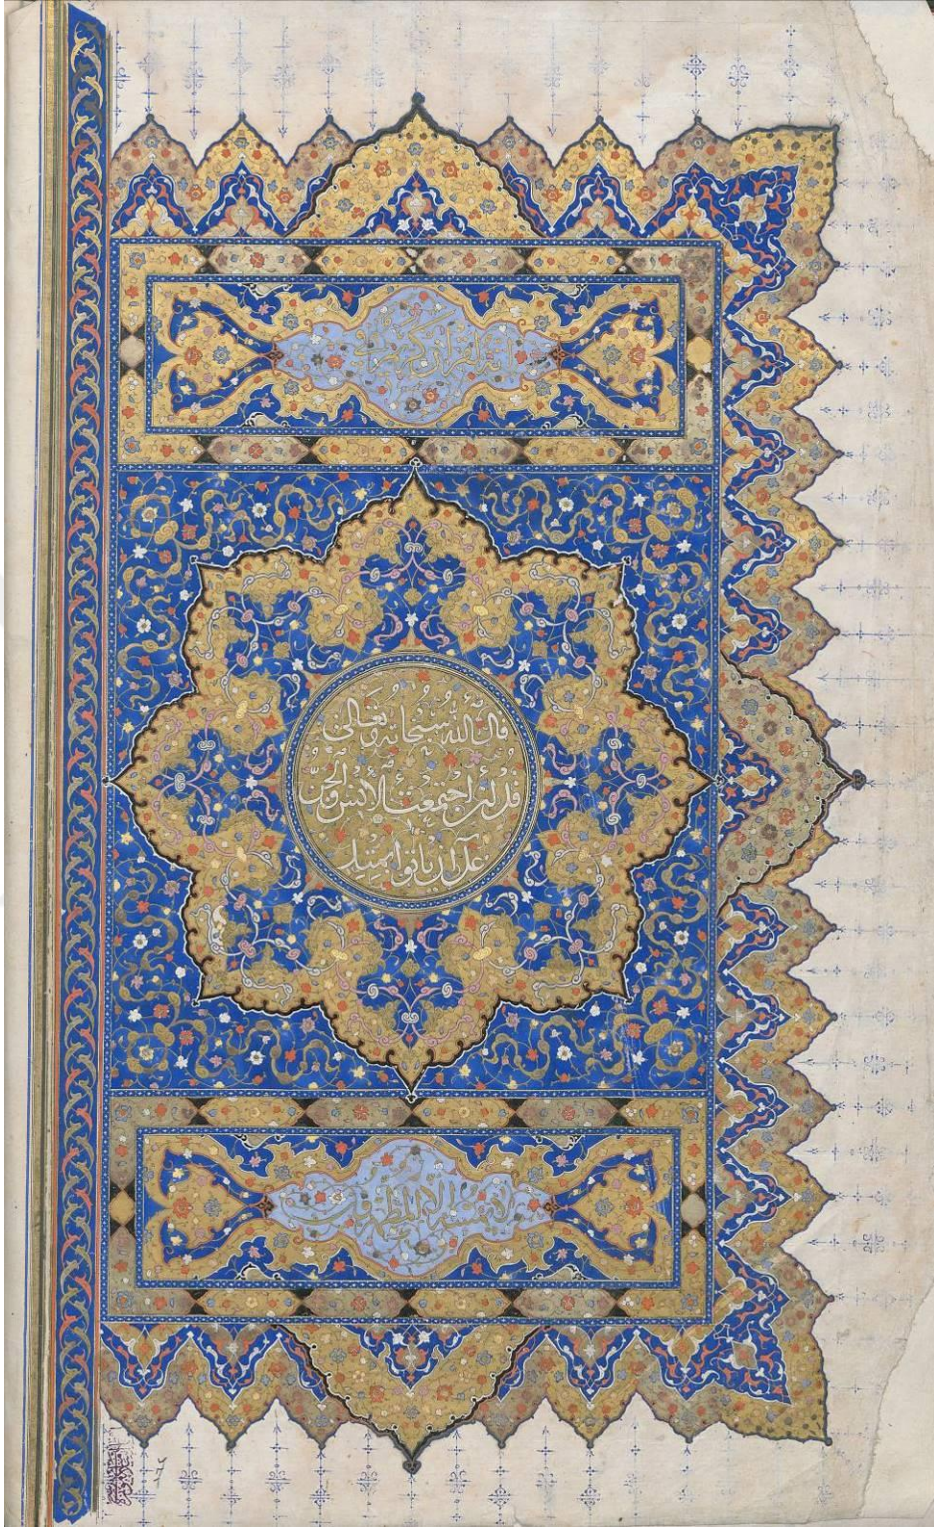 إنه لقرآن كريم
قال الله سبحانه وتعالى
قل لئن اجتمعت الإنس والجن
على أن يأتوا بمثل
لا يمسه إلا المطهرون